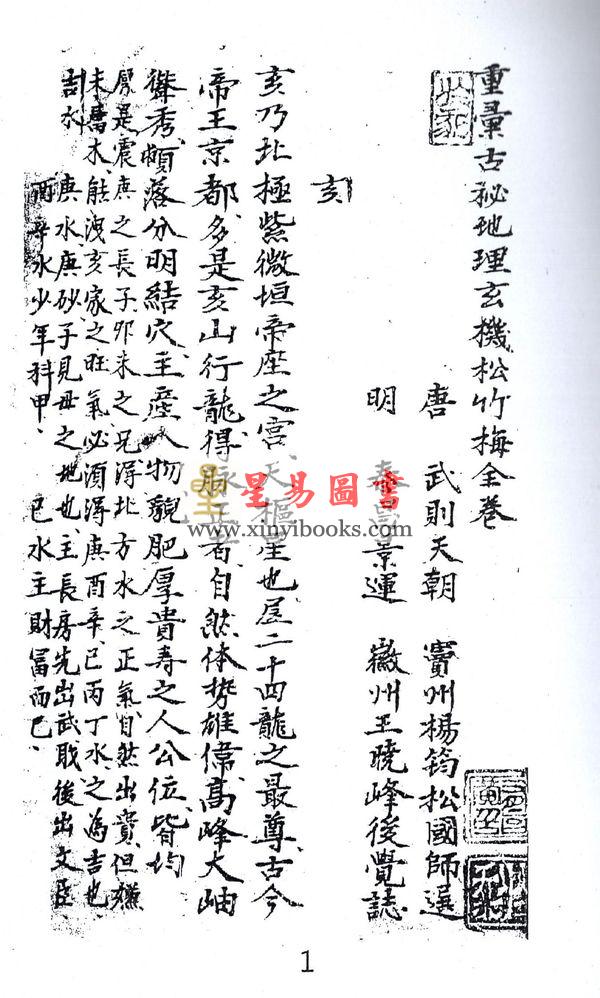 重彙古秘地理玄機松竹梅全卷
唐 武則天朝 竇州楊筠松國師選
明 景運 徽州王曉峰後覺誌
亥
亥乃北極紫微垣帝座之宮天樞星也居二十四龍之最尊古今
帝王京都多是亥山行龍得者自然体势雄偉高峰大岫
聳秀頓落分明結穴主產人物貌肥厚貴壽之人公位皆均
房是震庚之長子卯未之兄得北方水之正氣自然出貴但嫌
未喬木能洩亥家之旺氣必須得庚酉辛巳丙丁水之為吉也
吉水 庚水庚砂子見母之地也主長房先出武職後出文臣
酉辛水少年科甲 巳水主財富而已
星易圖書
www.xinyibooks.com
1